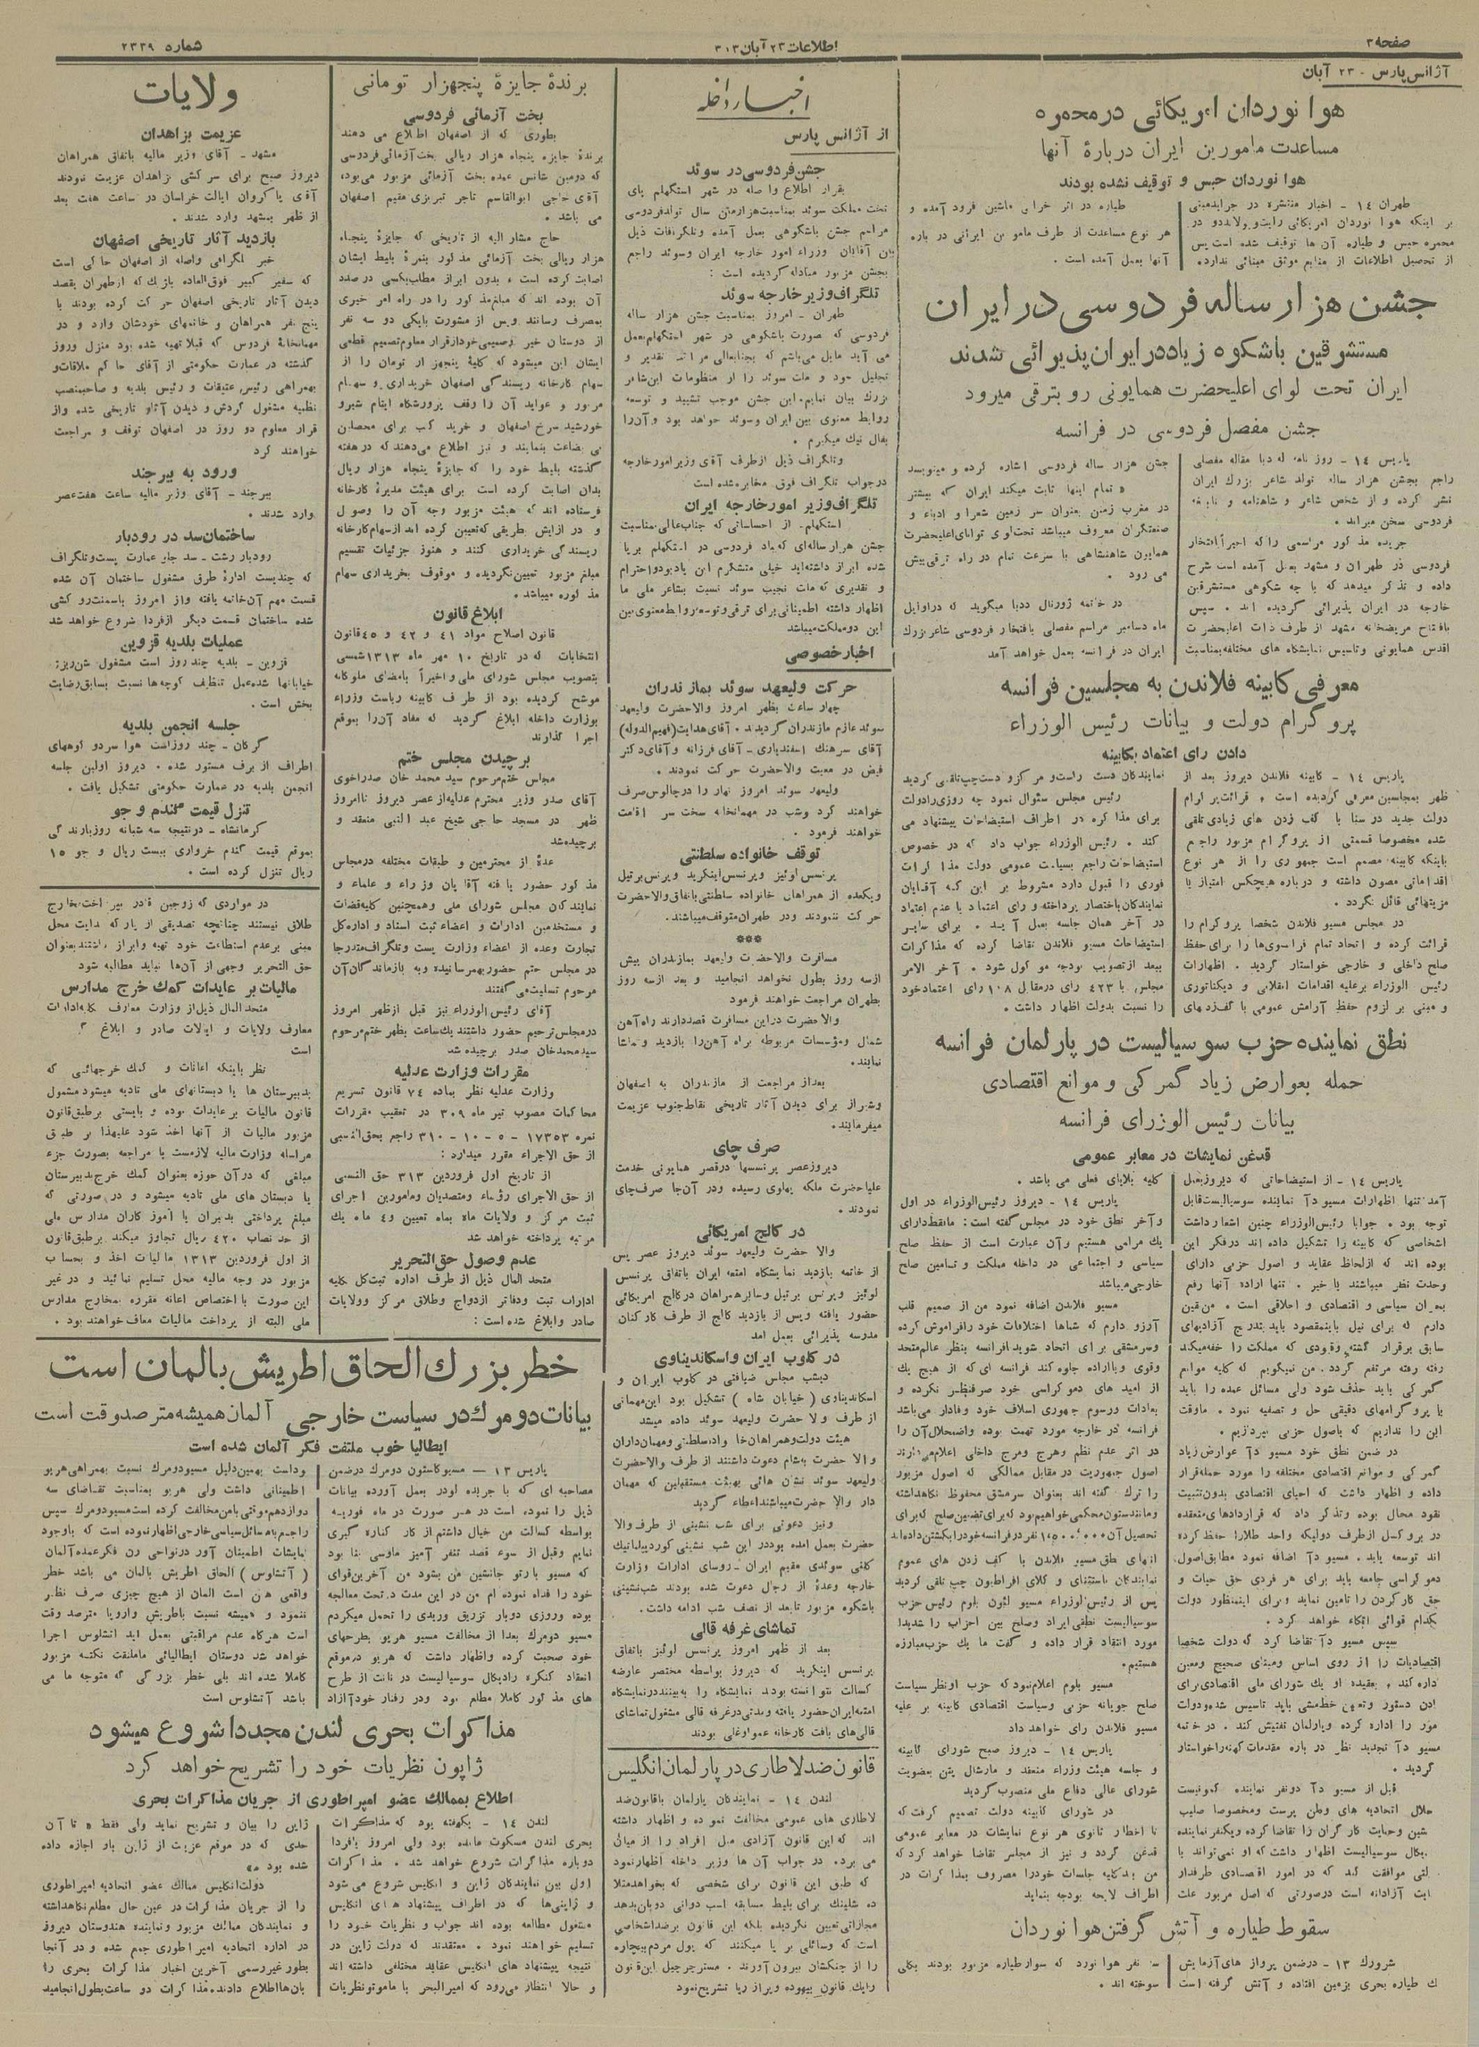 صفحه ۳
اطلاعات ۲۳ آبان ۳۱۳
شماره ۲۳۳۹
آژانس پارس - ۲۳ آبان
هوا نوردان امریکائی در محمره
مساعدت مامورین ایران دربارهٔ آنها
هوا نوردان حبس و توقیف نشده بودند
طهران ۱۴ - اخبار منتشره در جراید مبنی
بر اینکه هوا نوردان امریکائی رایت و پلاندو در
محمره حبس و طیاره آن ها توقیف شده است پس
از تحصیل اطلاعات از منابع موثق مبنائی ندارد.
طیاره در اثر خرابی ماشین فرود آمده و
هر نوع مساعدت از طرف مامورین ایرانی در باره
آنها بعمل آمده است .
جشن هزار ساله فردوسی در ایران
مستشرقین باشکوه زیاد در ایران پذیرائی شدند
ایران تحت لوای اعلیحضرت همایونی رو بترقی میرود
جشن مفصل فردوسی در فرانسه
راجم بجشن هزار ساله تولد شاعر بزرك ایران
نشر کرده و از شخص شاعر و شاهنامه و نابغه
فردوسی سخن میراند .
جریده مذکور مراسمی را که اخیراً افتخار
فردوسی در طهران و مشهد بعمل آمده است شرح
داده و تذکر میدهد که با چه شکوهی مستشرقین
خارجه در ایران پذیرائی گردیده اند . سپس
بافتتاح مریضخانه مشهد از طرف ذات اعلیحضرت
اقدس همایونی و تاسیس نمایشگاه های مختلفه بمناسبت
جشن هزار ساله فردوسی اشاره کرده و مینویسد
« تمام اینها ثابت میکند ایران که بیشتر
در مغرب زمین بعنوان سر زمین شعرا و ادباء و
صنعتگران معروف میباشد تحت لوای توانای اعلیحضرت
همایون شاهنشاهی با سرعت تمام در راه ترقی پیش
می رود .
در خاتمه ژورنال ددبا میگوید که در اوایل
ماه دسامبر مراسم مفصلی بافتخار فردوسی شاعر بزرك
ایران در فرانسه بعمل خواهد آمد
معرفی کابینه فلاندن به مجلسین فرانسه
پروگرام دولت و بیانات رئیس الوزراء
دادن رای اعتماد بکابینه
پاریس ۱۴ - کابینه فلاندن دیروز بعد از
ظهر بمجلسین معرفی گردیده است و قرائت پروگرام
دولت جدید در سنا با کف زدن های زیادی تلقی
شده مخصوصا قسمتی از پروگرام مزبور راجم
باینکه کابینه مصمم است جمهوری را از هر نوع
اقداماتی مصون داشته و درباره هیچکس امتیاز یا
مزیتهائی قائل نگردد .
در مجلس مسیو فلاندن شخصا پروگرام را
قرائت کرده و اتحاد تمام فرانسوی‌ها را برای حفظ
صلح داخلی و خارجی خواستار گردید . اظهارات
رئیس الوزراء بر علیه اقدامات انقلابی و دیکتاتوری
و مبنی بر لزوم حفظ آرامش عمومی با کف زدنهای
نمایندگان دست راست و مرکز و دست چپ تلقی گردید
رئیس مجلس سئوال نمود چه روزی را دولت
برای مذاکره در اطراف استیضاحات پیشنهاد می
کند . رئیس الوزراء جواب داد که در خصوص
استیضاحات راجم بسیاست عمومی دولت مذاکرات
فوری را قبول دارد مشروط بر این که آقایان
نمایندگان باختصار پرداخته و رای اعتماد یا عدم اعتماد
در آخر همان جلسه بعمل آید . برای سایر
استیضاحات مسیو فلاندن تقاضا کرده که مذاکرات
ببعد از تصویب بودجه موکول شود . آخر الامر
مجلس با ۴۲۳ رای در مقابل ۱۰۸ رای اعتماد خود
را نسبت بدولت اظهار داشت .
نطق نماینده حزب سوسیالیست در پارلمان فرانسه
حمله بعوارض زیاد گمرکی و موانع اقتصادی
بیانات رئیس الوزرای فرانسه
قدغن نمایشات در معابر عمومی
پاریس ۱۴ - از استیضاحاتی که دیروز بعمل
آمد تنها اظهارات مسیو دآ نماینده سوسیالیست قابل
توجه بود . جوابا رئیس الوزراء چنین اشعار داشت
اشخاصی که کابینه را تشکیل داده اند در فکر این
بوده اند که از لحاظ عقاید و اصول حزبی دارای
وحدت نظر میباشند یا خیر . تنها اراده آنها رفع
بحران سیاسی و اقتصادی و اخلاقی است . من یقین
دارم که برای نیل باینمقصود باید بتدریج آزادیهای
سابق برقرار گشته و قیودی که مملکت را خفه میکند
رفته رفته مرتفع گردد . من نمیگویم که کلیه موانع
گمرکی باید حذف شود ولی مسائل عمده را باید
با پروگرامهای دقیقی حل و تصفیه نمود . ما وقت
این را نداریم که باصول حزبی بپردازیم .
در ضمن نطق خود مسیو دآ عوارض زیاد
گمرکی و موانع اقتصادی مختلفه را مورد حمله قرار
داده و اظهار داشت که احیای اقتصادی بدون تثبیت
نقود محال بوده و تذکر داد که قراردادهای منعقده
در بروکسل از طرف دولیکه واحد طلا را حفظ کرده
اند توسعه یابد . مسیو دآ اضافه نمود مطابق اصول
دموکراسی جامعه باید برای هر فردی حق حیات و
حق کار کردن را تامین نماید و برای اینمنظور دولت
بکدام قوائی اتکاء خواهد کرد .
سپس مسیو دآ تقاضا کرد که دولت شخصا
اقتصادیات را از روی اساس و مبنای صحیح و معین
اداره کند . بعقیده او یك شورای ملی اقتصادی برای
دادن دستور و تعیین خط مشی باید تاسیس شده و دولت
امور را اداره کرده و پارلمان تفتیش کند . در خاتمه
مسیو دآ تجدید نظر در باره مقدمات کهنه را خواستار
گردید .
قبل از مسیو دآ دو نفر نماینده کمونیست
انحلال اتحادیه های وطن پرست و مخصوصا صلیب
آتشین و حمایت کارگران را تقاضا کرده و یکنفر نماینده
کلیه بلایای فعلی می باشد .
پاریس ۱۴ - دیروز رئیس الوزراء در اول
و آخر نطق خود در مجلس گفته است : ما فقط دارای
یك مرامی هستیم و آن عبارت است از حفظ صلح
سیاسی و اجتماعی در داخله مملکت و تامین صلح
خارجی میباشد
مسیو فلاندن اضافه نمود من از صمیم قلب
آرزو دارم که شماها اختلافات خود را فراموش کرده
و سرمشقی برای اتحاد شوید فرانسه بنظر عالم متحد
وقوی و با اراده جلوه کند فرانسه ای که از هیچ یك
از امید های دموکراسی خود صرفنظر نکرده و
بعادات و رسوم جمهوری اسلاف خود وفادار می باشد
فرانسه در خارجه مورد تهمت بوده و اضمحلال آن را
در اثر عدم نظم و هرج و مرج داخلی اعلام میدارند
اصول جمهوریت در مقابل ممالکی که اصول مزبور
را ترك گفته اند بعنوان سرمشق محفوظ نگاهداشته
و مانند ستون محکمی خواهیم بود که برای تضمین صلح که برای
تحصیل آن ۱۵۰۰۰۰۰ نفر در فرانسه خود را بکشتن داده اند
انتهای نطق مسیو فلاندن با کف زدن های عموم
نمایندگان باستثنای و کلای افراطیون چپ تلقی گردید
پس از رئیس الوزراء مسیو لئون بلوم رئیس حزب
سوسیالیست نطقی ایراد و صلح بین احزاب را شدیدا
مورد انتقاد قرار داده و گفت ما یك حزب مبارزه
هستیم .
مسیو بلوم اعلام نمود که حزب او نظر سیاست
صلح جویانه حزبی و سیاست اقتصادی کابینه بر علیه
مسیو فلاندن رای خواهد داد
پاریس ۱۴ - دیروز صبح شورای کابینه
و جلسه هیئت وزراء منعقد و مارشال پتن بعضویت
شورای عالی دفاع ملی منصوب گردید
در شورای کابینه دولت تصمیم گرفت که
تا اخطار ثانوی هر نوع نمایشات در معابر عمومی
قدغن گردد و نیز از مجلس تقاضا خواهد کرد که
من بعد کلیه جلسات خود را مصروف بمذاکرات در
اطراف لایحه بودجه بنماید
سقوط طیاره و آتش گرفتن هوا نوردان
شرورك ۱۳ - در ضمن پرواز های آزمایش
یك طیاره بحری بزمین افتاده و آتش گرفته است
سه نفر هوا نورد که سوار طیاره مزبور بودند بکلی
سوخته اند .
اخبار داخله
از آژانس پارس
جشن فردوسی در سوئد
بقرار اطلاع واصله در شهر استکهلم پای
تخت مملکت سوئد بمناسبت هزارمین سال تولد فردوسی
مراسم جشن باشکوهی بعمل آمده و تلگرافات ذیل
بین آقایان وزراء امور خارجه ایران و سوئد راجم
بجشن مزبور مبادله گردیده است :
تلگراف وزیر خارجه سوئد
طهران - امروز بمناسبت جشن هزار ساله
فردوسی که بصورت باشکوهی در شهر استکهلم بعمل
می آید مایل می‌باشم که بجنابعالی مراتب تقدیر و
تجلیل خود و ملت سوئد را از منظومات این شاعر
بزرك بیان نمایم . این جشن موجب تشیید و توسعه
روابط معنوی بین ایران و سوئد خواهد بود و آن را
بفال نیك میگیرم .
و تلگراف ذیل از طرف آقای وزیر امور خارجه
در جواب تلگراف فوق مخابره شده است
تلگراف وزیر امور خارجه ایران
استکهلم - از احساساتی که جناب عالی بمناسبت
جشن هزار ساله‌ای که بیاد فردوسی در استکهلم برپا
شده ابراز داشته‌اید خیلی متشکرم این یادبود و احترام
و تقدیری که ملت نجیب سوئد نسبت بشاعر ملی ما
اظهار داشته اطمینانی برای ترقی و توسعه روابط معنوی بین
این دو مملکت میباشد
اخبار خصوصی
حرکت ولیعهد سوئد بمازندران
چهار ساعت بظهر امروز والاحضرت ولیعهد
سوئد عازم مازندران گردیدند . آقای هدایت (فهیم الدوله)
آقای سرهنك اسفندیاری - آقای فرزانه و آقای دکتر
فیض در معیت والاحضرت حرکت نمودند .
ولیعهد سوئد امروز نهار را در چالوس صرف
خواهند کرد و شب در مهمانخانه سخت سر اقامت
خواهند فرمود .
توقف خانواده سلطنتی
پرنسس لوئیز و پرنسس اینگرید و پرنس برتیل
و یکعده از همراهان خانواده سلطنتی باتفاق والاحضرت
حرکت ننمودند و در طهران متوقف میباشند .
***
مسافرت والاحضرت ولیعهد بمازندران بیش
از سه روز بطول نخواهد انجامید و بعد از سه روز
بطهران مراجعت خواهند فرمود
والاحضرت در این مسافرت قصد دارند راه آهن
شمال و مؤسسات مربوطه براه آهن را بازدید و تماشا
نمایند .
بعد از مراجعت از مازندران به اصفهان
و شیراز برای دیدن آثار تاریخی نقاط جنوب عزیمت
میفرمایند .
صرف چای
دیروز عصر پرنسسها در قصر همایونی خدمت
علیاحضرت ملکه پهلوی رسیده و در آن جا صرف چای
نمودند .
در کالج امریکائی
والا حضرت ولیعهد سوئد دیروز عصر پس
از خاتمه بازدید نمایشگاه امتعه ایران باتفاق پرنسس
لوئیز و پرنس برتیل و سایر همراهان در کالج امریکائی
حضور یافته و پس از بازدید کالج از طرف کارکنان
مدرسه پذیرائی بعمل آمد
در کلوب ایران و اسکاندیناوی
دیشب مجلس ضیافتی در کلوب ایران و
اسکاندیناوی ( خیابان شاه ) تشکیل بود این مهمانی
از طرف والا حضرت ولیعهد سوئد داده میشد
هیئت دولت و همراهان خانواده سلطنتی و مهمانداران
والا حضرت بشام دعوت داشتند از طرف والاحضرت
ولیعهد سوئد نشان هائی بهیئت مستقبلین که مهمان
دار والا حضرت میباشند اعطاء گردید
و نیز دعوتی برای شب نشینی از طرف والا
حضرت بعمل آمده بود در این شب نشینی کور دیپلماتیك
کلنی سوئدی مقیم ایران - روسای ادارات وزارت
خارجه و عدهٔ از رجال دعوت شده بودند شب نشینی
باشکوه مزبور تا بعد از نصف شب ادامه داشت .
تماشای غرفه قالی
بعد از ظهر امروز پرنسس لوئیز باتفاق
پرنسس اینگرید که دیروز بواسطه مختصر عارضه
کسالت نتوانسته بودند نمایشگاه را به بینند در نمایشگاه
امتعه ایران حضور یافته و مدتی در غرفه قالی مشغول تماشای
قالی‌های بافت کارخانه عمو اوغلی بودند
قانون ضد لاطاری در پارلمان انگلیس
لندن ۱۴ - نمایندگان پارلمان با قانون ضد
لاطاری های عمومی مخالفت نموده و اظهار داشته
اند که این قانون آزادی عمل افراد را از میان
می برد . در جواب آن ها وزیر داخله اظهار نمود
که طبق این قانون برای شخصی که بخواهد مثلا
ده شلینك برای بلیط مسابقه اسب دوانی دوبلن بدهد
مجازاتی تعیین نگردیده بلکه این قانون بر ضد اشخاصی
است که وسائلی برپا میکنند که پول مردم بیچاره
را از چنگشان بیرون آورند . مستر چرچیل این قانون
را یك قانون بیهوده و پر از ریا تشریح نمود
برندهٔ جایزهٔ پنجهزار تومانی
بخت آزمائی فردوسی
بطوری که از اصفهان اطلاع می دهند
برندهٔ جایزه پنجاه هزار ریالی بخت آزمائی فردوسی
که دومین شانس عمده بخت آزمائی مزبور می‌بود ،
آقای حاجی ابوالقاسم تاجر تبریزی مقیم اصفهان
می باشد .
حاج مشار الیه از تاریخی که جایزهٔ پنجاه
هزار ریالی بخت آزمائی مذکور بنمرهٔ بلیط ایشان
اصابت کرده است ، بدون ابراز مطلب بکسی در صدد
آن بوده اند که مبلغ مذکور را در راه امر خیری
بمصرف رسانند و پس از مشورت با یکی دو سه نفر
از دوستان خبر وصمیمی خود از قرار معلوم تصمیم قطعی
ایشان این میشود که کلیهٔ پنجهزار تومان را از
سهام کارخانه ریسندگی اصفهان خریداری و سهام
مزبور و عواید آن را وقف پرورشگاه ایتام شیر و
خورشید سرخ اصفهان و خرید کتب برای محصلین
بی بضاعت بنمایند و نیز اطلاع می‌دهند که در هفته
گذشته بلیط خود را که جایزهٔ پنجاه هزار ریال
بدان اصابت کرده است برای هیئت مدیرهٔ کارخانه
فرستاده اند که هیئت مزبور وجه آن را وصول
و در ازایش بطریقی که تعیین کرده اند از سهام کارخانه
ریسندگی خریداری کنند و هنوز جزئیات تقسیم
مبلغ مزبور تعیین نگردیده و موقوف بخریداری سهام
مذکوره میباشد .
ابلاغ قانون
قانون اصلاح مواد ۴۱ و ۴۲ و ۴۵ قانون
انتخابات که در تاریخ ۱۰ مهر ماه ۱۳۱۳ شمسی
بتصویب مجلس شورای ملی و اخیراً بامضای ملوکانه
موشح گردیده بود از طرف کابینه ریاست وزراء
بوزارت داخله ابلاغ گردید که مفاد آن را بموقع
اجرا گذارند
برچیدن مجلس ختم
مجلس ختم مرحوم سید محمد خان صدر اخوی
آقای صدر وزیر محترم عدلیه از عصر دیروز تا امروز
ظهر در مسجد حاجی شیخ عبد النبی منعقد و
برچیده شد
عدهٔ از محترمین و طبقات مختلفه در مجلس
مذکور حضور یافته آقایان وزراء و علماء و
نمایندگان مجلس شورای ملی و همچنین کلیه قضات
و مستخدمین ادارات و اعضاء ثبت اسناد و اداره کل
تجارت و عده از اعضاء وزارت پست و تلگراف متدرجا
در مجلس ختم حضور بهمرسانیده و به بازماندگان آن
مرحوم تسلیت می گفتند
آقای رئیس الوزراء نیز قبل از ظهر امروز
در مجلس ترحیم حضور داشتند یك ساعت بظهر ختم مرحوم
سید محمد خان صدر برچیده شد
مقررات وزارت عدلیه
وزارت عدلیه نظر بماده ۷۴ قانون تسریع
محاکمات مصوب تیر ماه ۳۰۹ در تعقیب مقررات
نمره ۱۷۳۵۳ - ۵ - ۱۰ - ۳۱۰ راجم بحق النسبی
از حق الاجراء مقرر میدارد :
از تاریخ اول فروردین ۳۱۳ حق النسبی
از حق الاجرای رؤساء و متصدیان و مامورین اجرای
ثبت مرکز و ولایات ماه بماه تعیین و ۴ ماه یك
مرتبه پرداخته خواهد شد
عدم وصول حق التحریر
متحد المال ذیل از طرف اداره ثبت کل بکلیه
ادارات ثبت و دفاتر ازدواج و طلاق مرکز و ولایات
صادر و ابلاغ شده است :
ولایات
عزیمت بزاهدان
مشهد - آقای وزیر مالیه باتفاق همراهان
دیروز صبح برای سرکشی بزاهدان عزیمت نمودند
آقای پاکروان ایالت خراسان در ساعت هفت بعد
از ظهر بمشهد وارد شدند .
بازدید آثار تاریخی اصفهان
خبر تلگرافی واصله از اصفهان حاکی است
که سفیر کبیر فوق العاده بلژیك که از طهران بقصد
دیدن آثار تاریخی اصفهان حرکت کرده بودند با
پنج نفر همراهان و خانمهای خودشان وارد و در
مهمانخانهٔ فردوس که قبلا تهیه شده بود منزل و روز
گذشته در عمارت حکومتی از آقای حاکم ملاقات و
بهمراهی رئیس عتیقات و رئیس بلدیه و صاحبمنصب
نظمیه مشغول گردش و دیدن آثار تاریخی شده و از
قرار معلوم دو روز در اصفهان توقف و مراجعت
خواهند کرد
ورود به بیرجند
بیرجند - آقای وزیر مالیه ساعت هفت عصر
وارد شدند .
ساختمان سد در رودبار
رودبار رشت - سد جلو عمارت پست و تلگراف
که چندیست ادارهٔ طرق مشغول ساختمان آن شده
قسمت مهم آن خاتمه یافته و از امروز باسمنت رو کشی
شده ساختمان قسمت دیگر از فردا شروع خواهد شد
عملیات بلدیه قزوین
قزوین - بلدیه چند روز است مشغول شن‌ریزی
خیابانها شده عمل تنظیف کوچه‌ها نسبت بسابق رضایت
بخش است .
جلسه انجمن بلدیه
گرگان - چند روز است هوا سرد و کوههای
اطراف از برف مستور شده . دیروز اولین جلسه
انجمن بلدیه در عمارت حکومتی تشکیل یافت .
تنزل قیمت گندم و جو
کرمانشاه - در نتیجه سه شبانه روز بارندگی
بموقع قیمت گندم خرواری بیست ریال و جو ۱۵
ریال تنزل کرده است .
در مواردی که زوجین قادر بپرداخت مخارج
طلاق نیستند چنانچه تصدیقی از پارکه بدایت محل
مبنی بر عدم استطاعت خود تهیه و ابراز داشتند بعنوان
حق التحریر وجهی از آن‌ها نباید مطالبه شود
مالیات بر عایدات کمك خرج مدارس
متحد المال ذیل از وزارت معارف بکلیه ادارات
معارف ولایات و ایالات صادر و ابلاغ گردیده
است
نظر باینکه اعانات و کمك خرجهائی که
بدبیرستان ها یا دبستانهای ملی تادیه میشود مشمول
قانون مالیات بر عایدات بوده و بایستی بر طبق قانون
مزبور مالیات از آنها اخذ شود علیهذا بر طبق
مراسله وزارت مالیه لازمست با مراجعه بصورت جزء
مبلغی که در آن حوزه بعنوان کمك خرج بدبیرستان
یا دبستان های ملی تادیه میشود و در صورتی که
مبلغ پرداختی بمدیران یا آموزگاران مدارس ملی
از حد نصاب ۴۲۰ ریال تجاوز میکند بر طبق قانون
از اول فروردین ۱۳۱۳ مالیات اخذ و بحساب
مزبور در وجه مالیه محل تسلیم نمائید و در غیر
این صورت با اختصاص اعانه مقرره بمخارج مدارس
ملی البته از پرداخت مالیات معاف خواهند بود .
خطر بزرك الحاق اطریش بالمان است
بیانات دومرك در سیاست خارجی آلمان همیشه مترصد وقت است
ایطالیا خوب ملتفت فکر آلمان شده است
پاریس ۱۳ - مسیو گاستون دومرك در ضمن
مصاحبه ای که با جریده لودر بعمل آورده بیانات
ذیل را نموده است در هر صورت در ماه فوریه
بواسطه کسالت من خیال داشتم از کار کناره گیری
نمایم و قبل از سوء قصد تنفر آمیز مارسی بنا بود
که مسیو بارتو جانشین من بشود من آخرین قوای
خود را فداء نموده ام من در این مدت در تحت معالجه
بوده و روزی دوبار تزریق وریدی را تحمل میکردم
مسیو دومرك بعدا از مخالفت مسیو هریو بطرحهای
خود صحبت کرده و اظهار داشت که هریو در موقع
انعقاد کنگره رادیکال سوسیالیست در نانت از طرح
های مذکور کاملا مطلع بود و در رفتار خود آزاد
و داشت بهمین دلیل مسیو دومرك نسبت بهمراهی هریو
اطمینانی داشت ولی هریو بمناسبت تقاضای سه
دوازدهم موقتی با من مخالفت کرده است مسیو دومرك سپس
راجم بمسائل سیاسی خارجی اظهار نموده است که باوجود
نمایشات اطمینان آور در نواحی رن فکر عمده آلمان
( آنشلوس ) الحاق اطریش بالمان می باشد خطر
واقعی همین است المان از هیچ چیزی صرف نظر
ننمود و همیشه نسبت باطریش و اروپا مترصد وقت
است هرگاه عدم مراقبتی بعمل اید انشلوس اجرا
خواهد شد دوستان ایطالیائی ما ملتفت نکته مزبور
کاملا شده اند بلی خطر بزرگی که متوجه ما می
باشد آنشلوس است
مذاکرات بحری لندن مجددا شروع میشود
ژاپون نظریات خود را تشریح خواهد کرد
اطلاع بممالك عضو امپراطوری از جریان مذاکرات بحری
لندن ۱۴ - یکهفته بود که مذاکرات
بحری لندن مسکوت مانده بود ولی امروز یا فردا
دوباره مذاکرات شروع خواهد شد . مذاکرات
اول بین نمایندگان ژاپن و انگلیس شروع می‌شود
و ژاپنی‌ها که در اطراف پیشنهاد های انگلیس
مشغول مطالعه بوده اند جواب و نظریات خود را
تسلیم خواهند نمود . معتقدند که دولت ژاپن در
نتیجه پیشنهاد های انگلیس عقاید مختلفی داشته اند
و حالا انتظار می‌رود که امیر البحر یاماموتو نظریات
ژاپن را بیان و تشریح نماید ولی فقط « تا آن
حدی که در موقع عزیمت از ژاپن باو اجازه داده
شده بود »
دولت انگلیس ممالك عضو اتحادیه امپراطوری
را از جریان مذاکرات در عین حال مطلع نگاهداشته
و نمایندگان ممالك مزبور و نماینده هندوستان دیروز
در اداره اتحادیه امپراطوری جمع شده و در آنجا
بطور غیر رسمی آخرین اخبار مذاکرات بحری را
بان‌ها اطلاع دادند . مذاکرات دو ساعت بطول انجامید